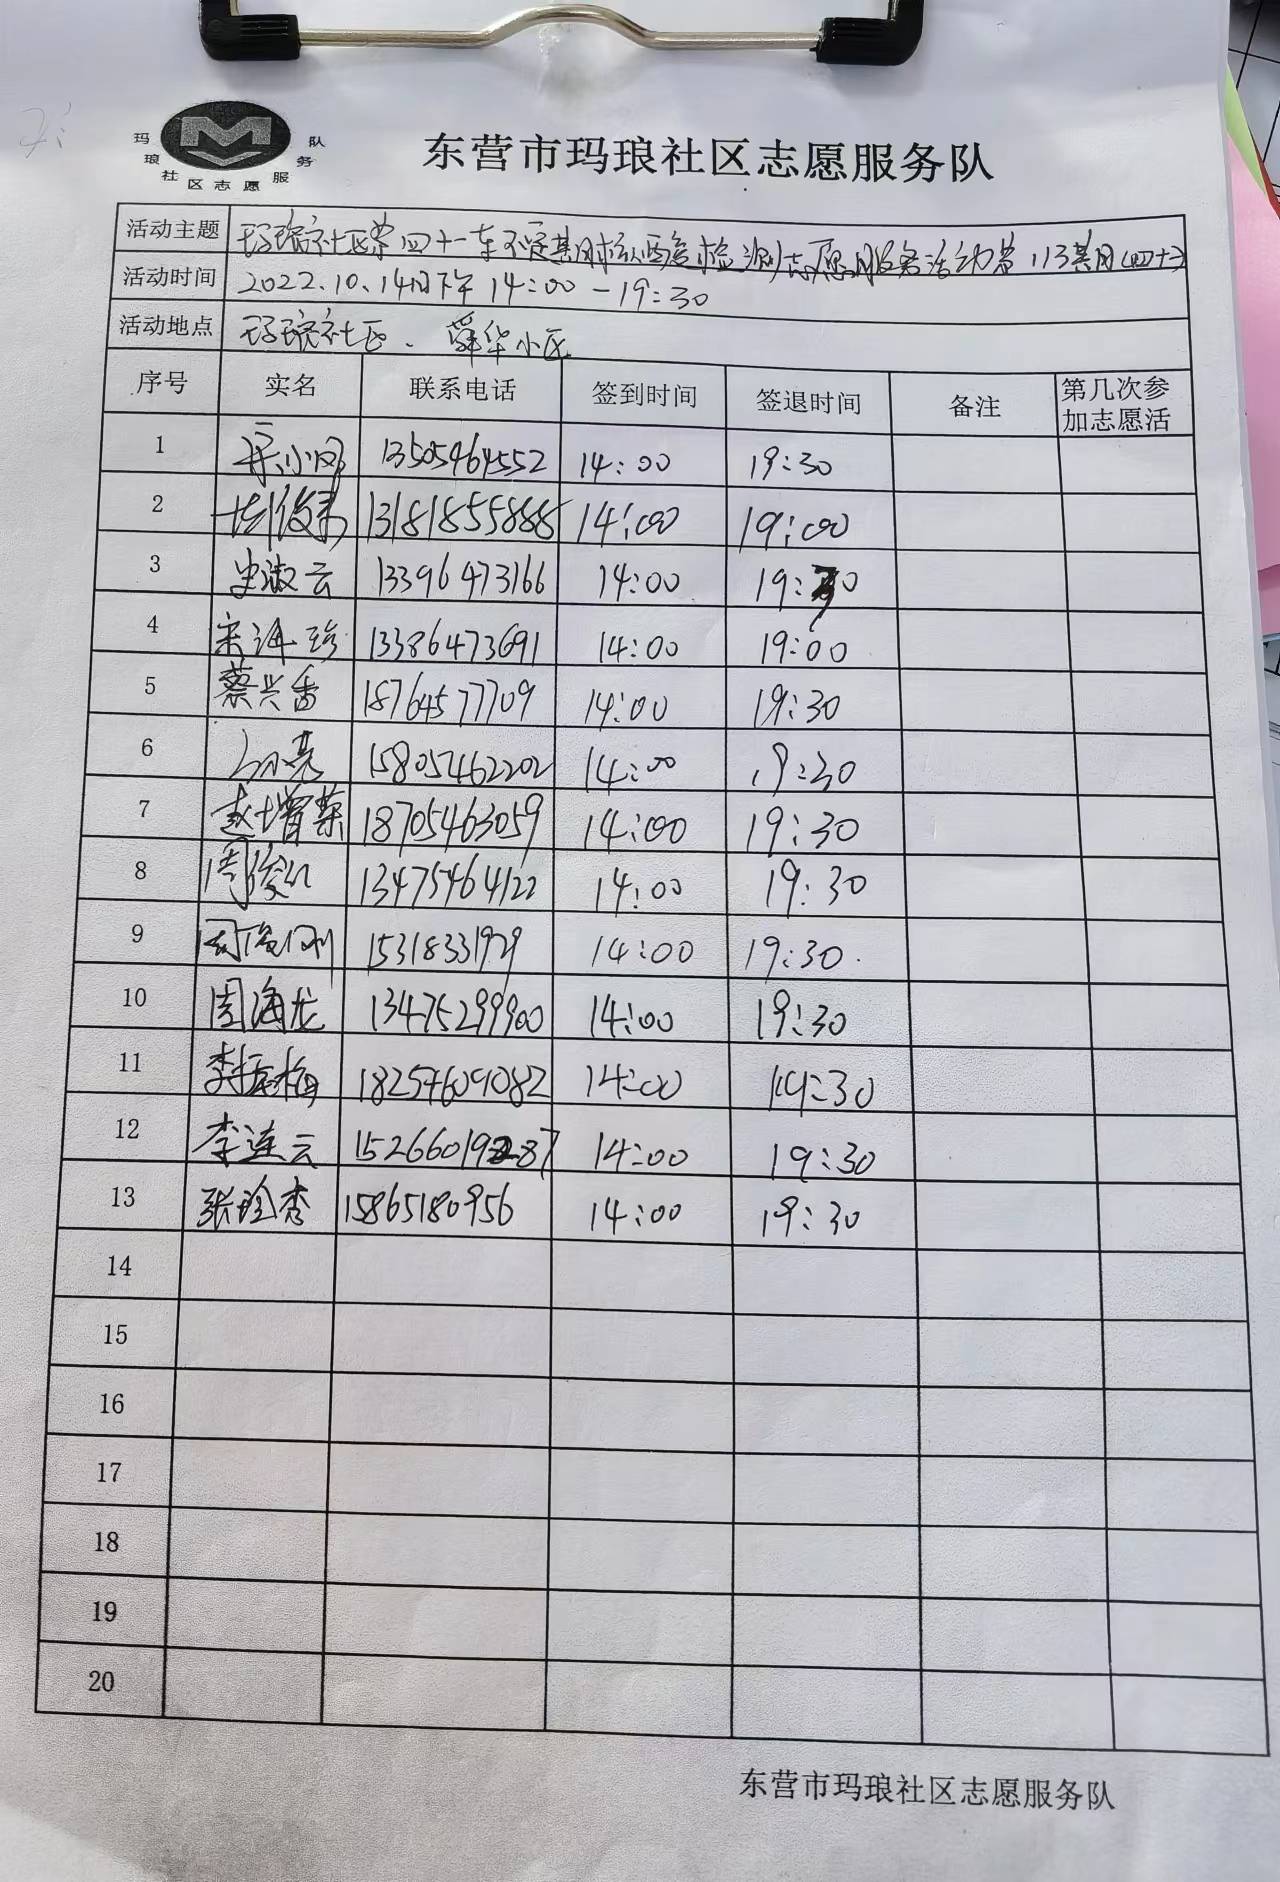 玛琅社区志愿服务队
东营市玛琅社区志愿服务队
活动主题 玛琅社区第四十一车不定期核酸检测志愿服务活动第113期(四十)
活动时间 2022.10.14日下午14:00-19:30
活动地点 玛琅社区、舜华小区
序号 实名 联系电话 签到时间 签退时间 备注 第几次参加志愿活
1 13505464552 14:00 19:30
2 13181855888 14:00 19:00
3 史淑云 13396473166 14:00 19:30
4 宋海珍 13386473691 14:00 19:00
5 蔡兴香 18764577709 14:00 19:30
6 15805462202 14:00 19:30
7 赵增荣 18705463059 14:00 19:30
8 周俊红 13475464122 14:00 19:30
9 周俊刚 15318331929 14:00 19:30
10 周海龙 13475299900 14:00 19:30
11 李振梅 18254609082 14:00 19:30
12 李连云 15266019287 14:00 19:30
13 张玲秀 15865180956 14:00 19:30
14
15
16
17
18
19
20
东营市玛琅社区志愿服务队